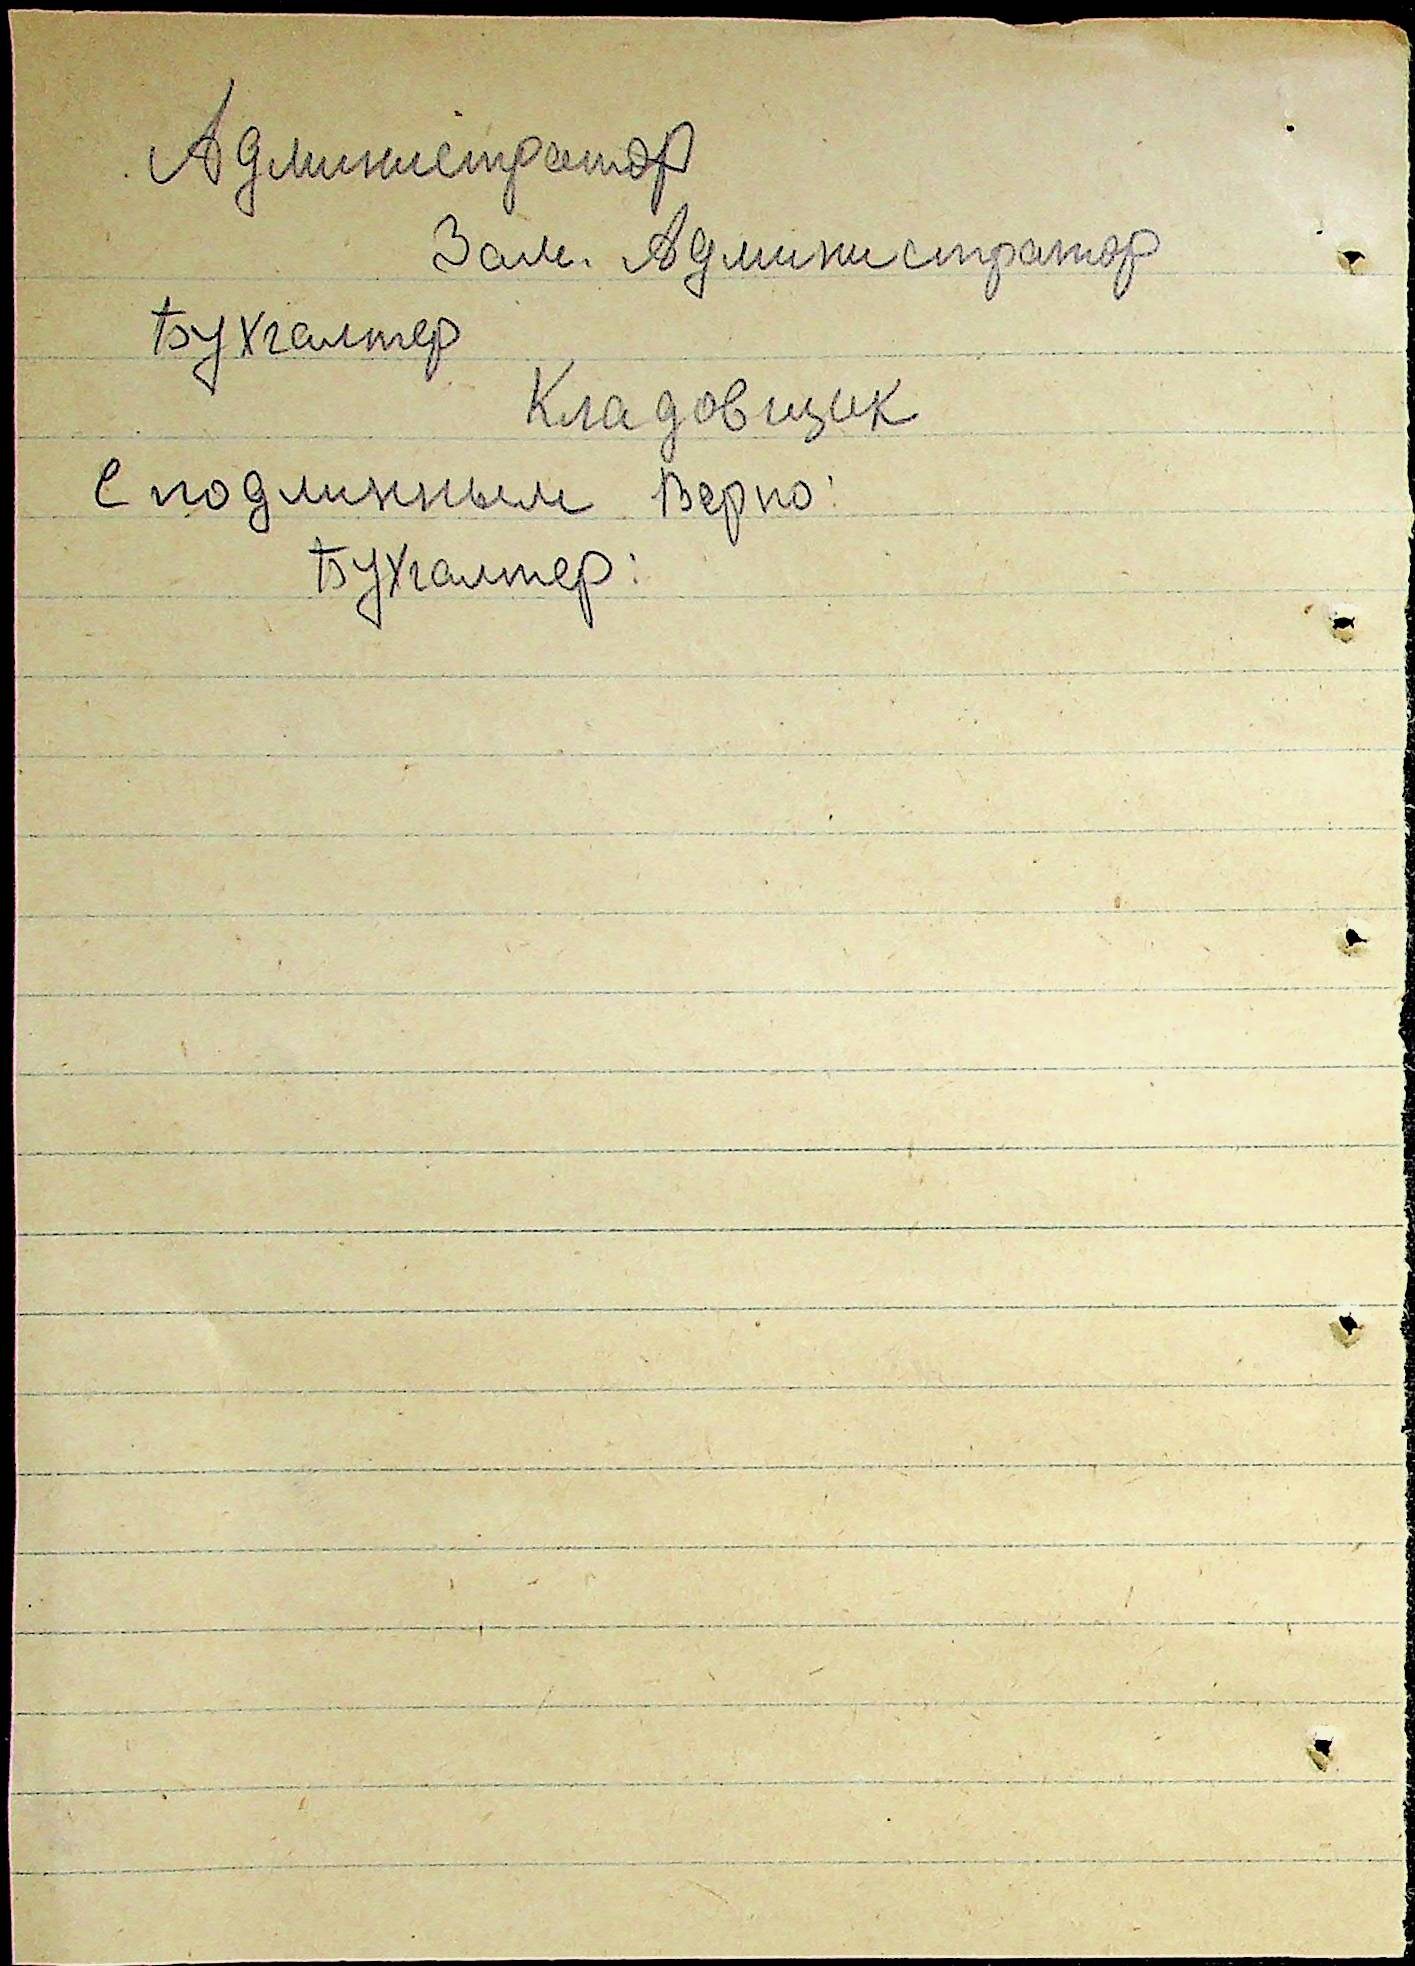 Администратор
Зам. Администратор
Бухгалтер
Кладовщик
С подлинным Верно:
Бухгалтер: